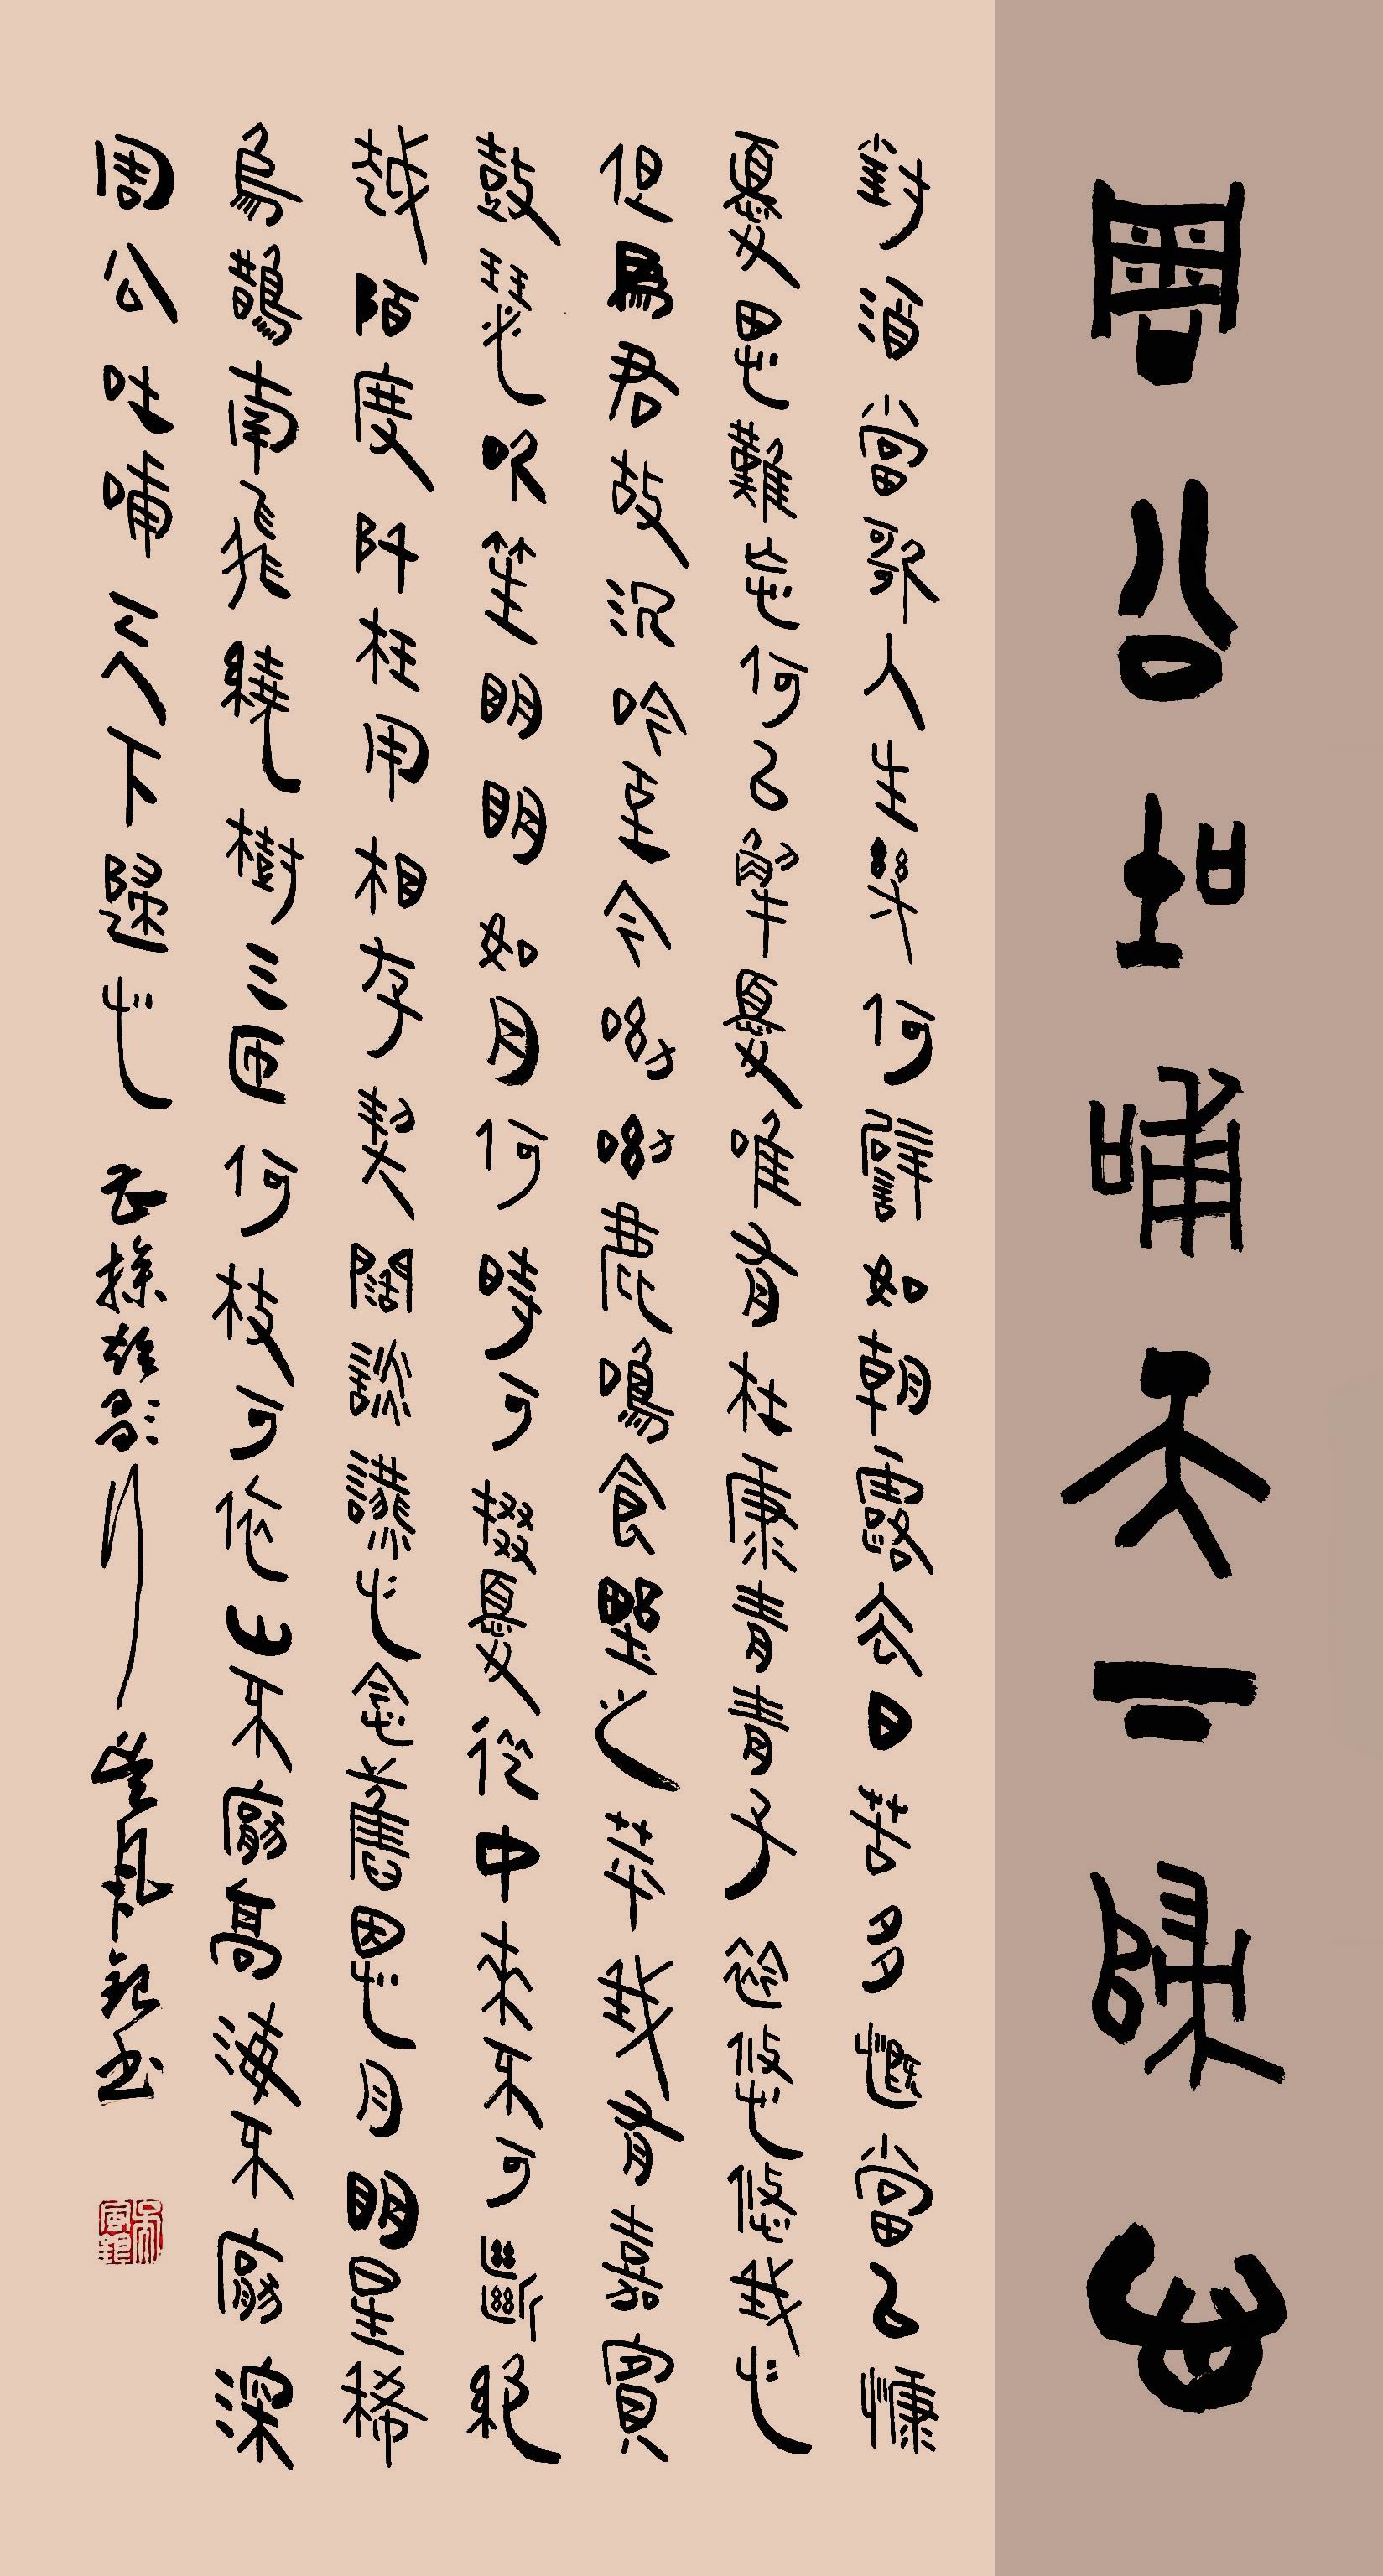 周公吐哺天下歸心
對酒當歌人生幾何譬如朝露去日苦多慨當以慷
憂思難忘何以解憂唯有杜康青青子衿悠悠我心
但為君故沉吟至今呦呦鹿鳴食野之苹我有嘉賓
鼓瑟吹笙明明如月何時可掇憂從中來不可斷絕
越陌度阡枉用相存契闊談讌心念舊恩月明星稀
烏鵲南飛繞樹三匝何枝可依山不厭高海不厭深
周公吐哺天下歸心 书